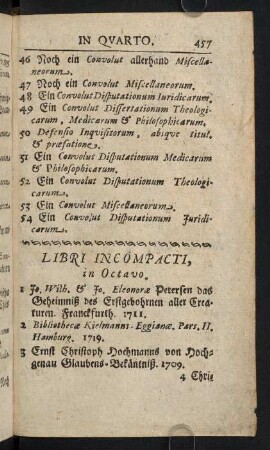 IN QVARTO. 457
46 Noch ein Convolut allerhand Miscella-
neorum.
47 Noch ein Convolut Miscellaneorum.
48 Ein Convolut Disputationum Iuridicarum.
49 Ein Convolut Dissertationum Theologi-
carum, Medicarum & Philosophicarum.
50 Defensio Inqvisitorum, abiqve titul.
& præfatione.
51 Ein Convolut Disputationum Medicarum
& Philosophicarum.
52 Ein Convolut Disputationum Theologi-
carum.
53 Ein Convolut Miscellaneorum.
54 Ein Convolut Disputationum Juridi-
carum.
LIBRI INCOMPACTI,
in Octavo.
1 Jo. Wilh. & Jo. Eleonoræ Petersen das
Geheimniß des Erstgebohrnen aller Crea-
turen. Franckfurth. 1711.
2 Bibliothecæ Kielmanni-Eggianæ. Pars. II.
Hamburg. 1719.
3 Ernst Christoph Hochmanns von Hoch-
genau Glaubens-Bekäntniß. 1709.
4 Chri-